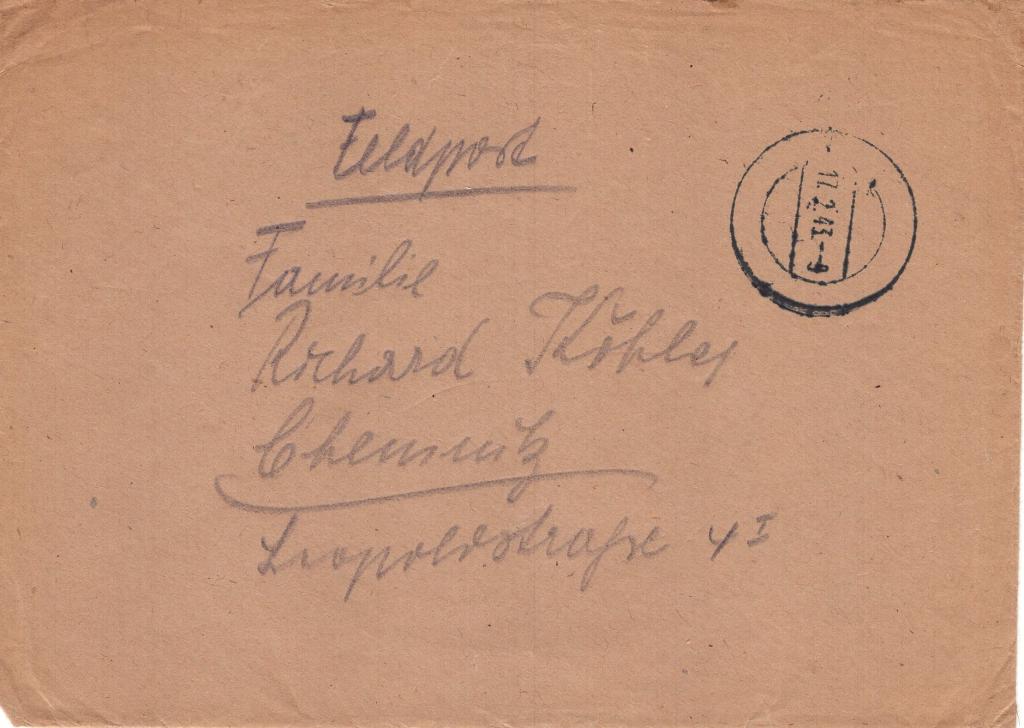 Feldpost
17.2.43.-9
Familie
Richard Köhler
Chemnitz
Leopoldstraße 4 I